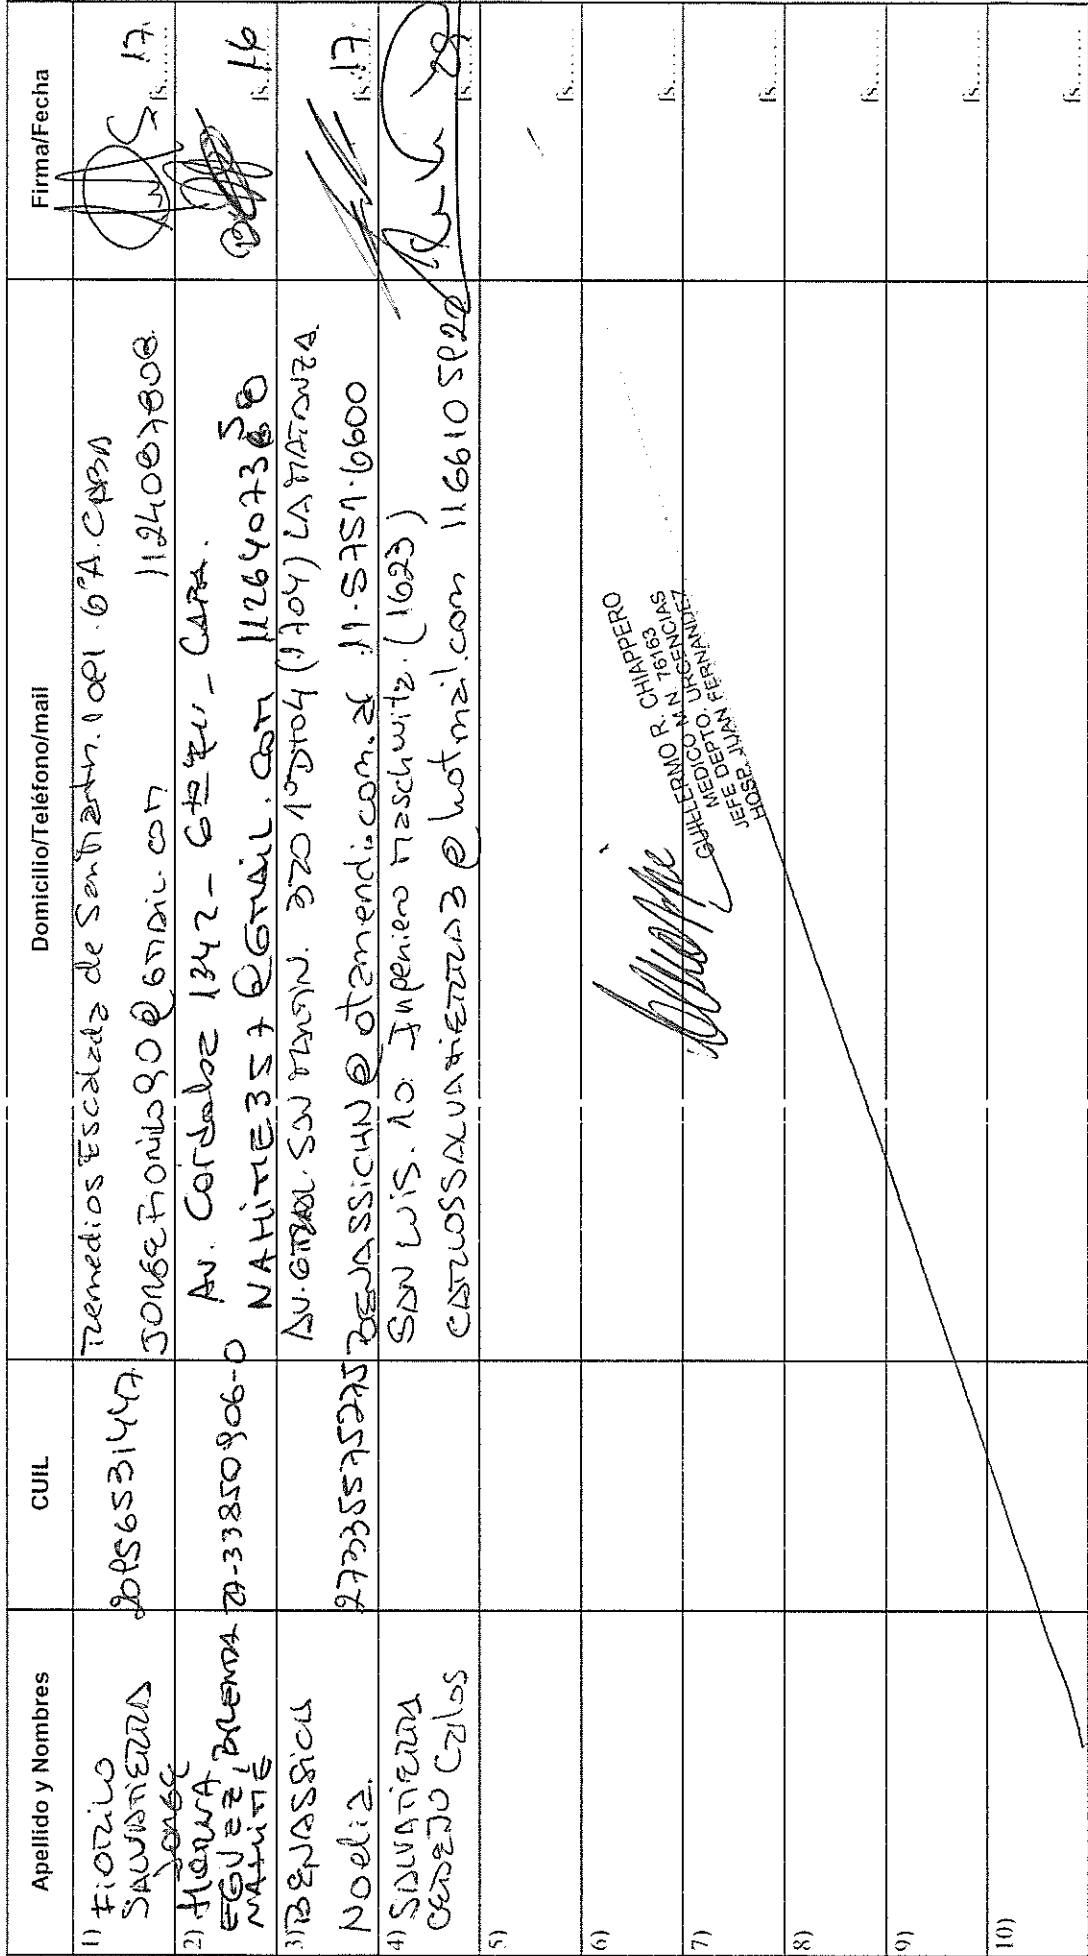 Apellido y Nombres
CUIL
Domicilio/Teléfono/mail
Firma/Fecha
1) FIORILO
SALVATIERRA
JORGE
Remedios Escalada de San Martin. 6°A. CABA
1124087808
fs. 17.
2)
EGUEZ, BRENDA
NAHIME
33850906-0
Av. Cordoba 1342 - CABA.
NAHIME357@GMAIL.COM
fs. 16
3) BENASSICH
Noelia.
27335575275
AV. GRAL. SAN MARTIN. 3201 (1704) LA MATANZA
BENASSICHN@otamendi.com.ar 11.5751.6600
fs. 17.
4) SALVATIERRA
Carlos
SAN LUIS. 10. Ingeniero Maschwitz. (1623)
CARLOSSALVATIERRA3@hotmail.com
fs. 29
5)
fs.......
6)
fs.......
GUILLERMO R. CHIAPPERO
MEDICO M.N. 76163
JEFE DEPTO. URGENCIAS
MEDICO
HOSP. JUAN FERNANDEZ
7)
fs.......
8)
fs.......
9)
fs.......
10)
fs.......